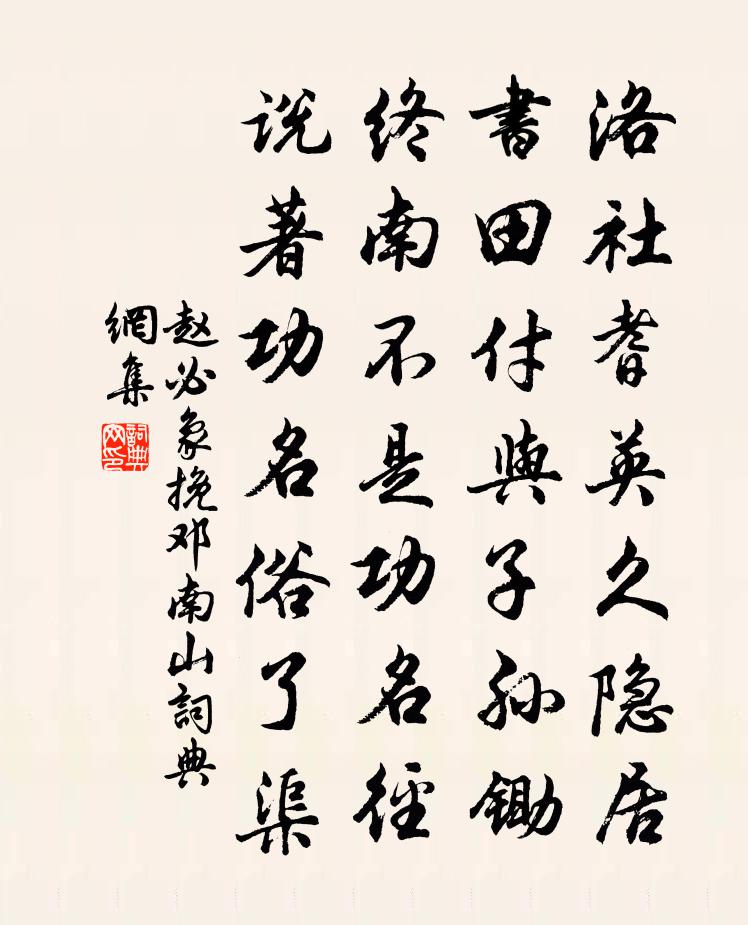 洛社耆英久隐居
書田付與子孙鋤
终南不是功名徑
说著功名俗了渠
赵必象挽邓南山詞典
網集
詞典
网印